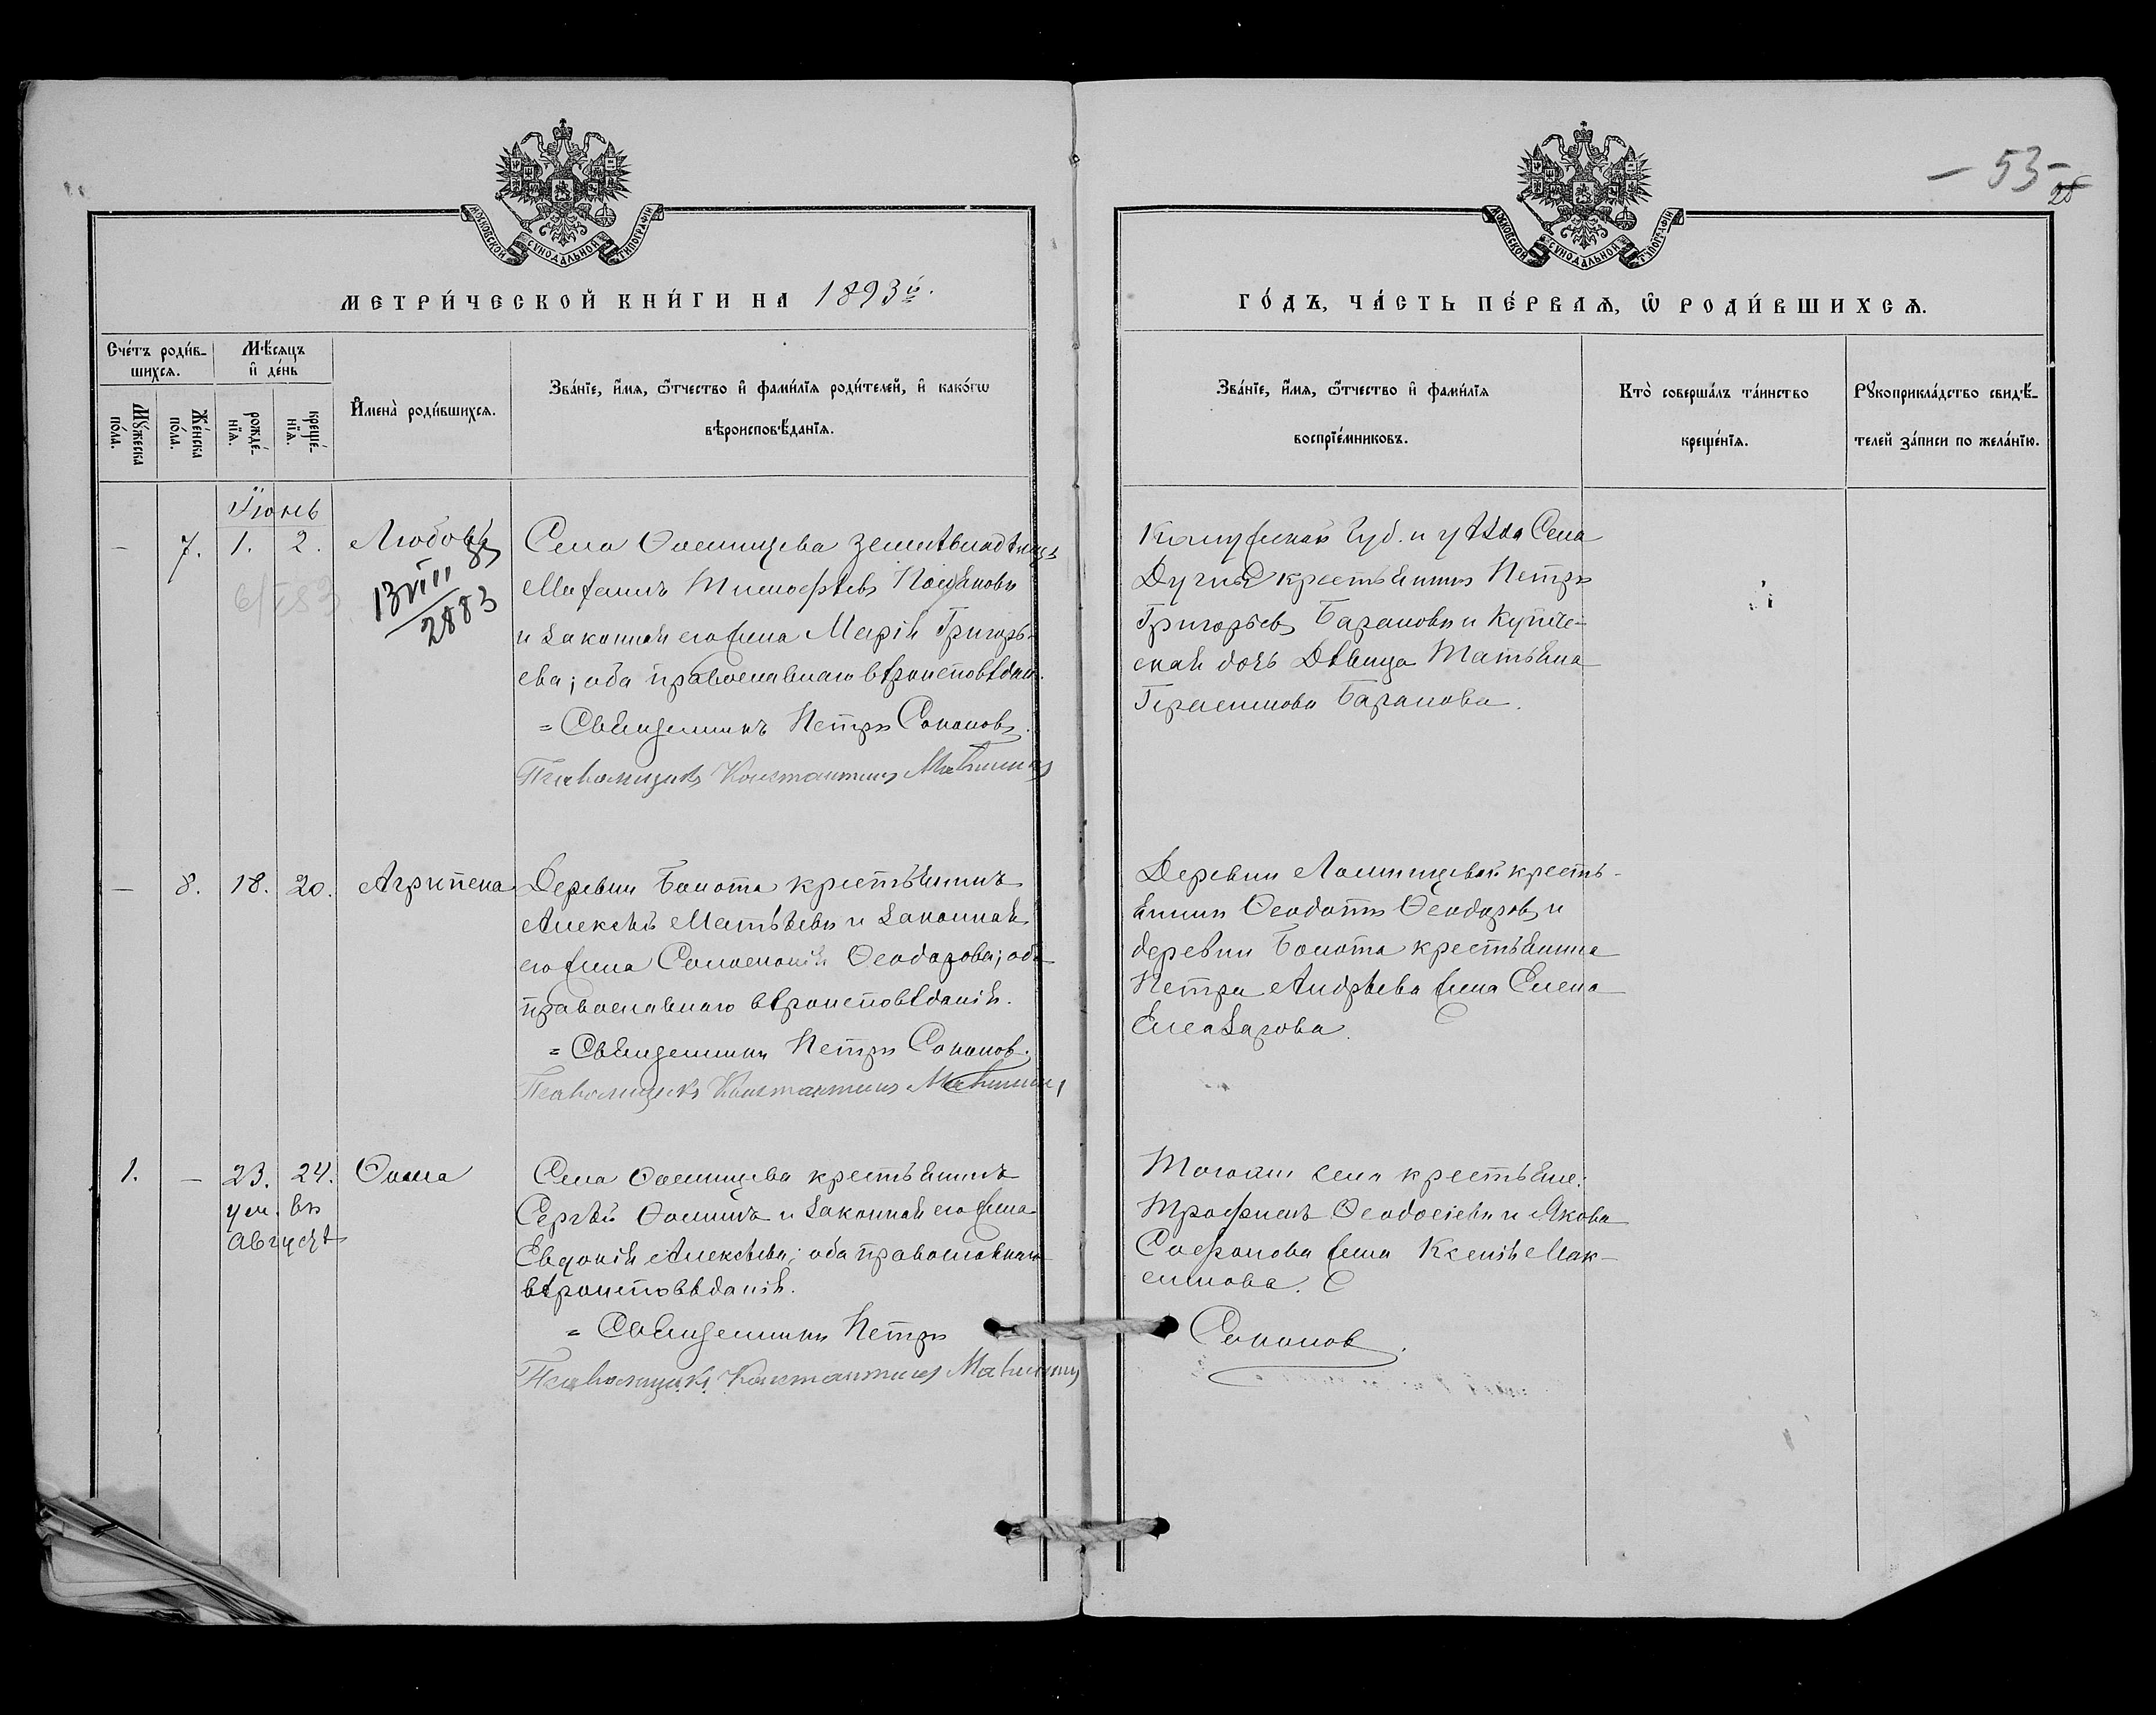 - 53 -
26
МОСКОВСКОЙ СѴНОДАЛЬНОЙ ТИПОГРАФІИ
МОСКОВСКОЙ СѴНОДАЛЬНОЙ ТИПОГРАФІИ
МЕТРИ́ЧЕСКОЙ КНИ́ГИ НА 1893й.
ГО́ДЪ, ЧА́СТЬ ПЕ́РВАѦ, Ѽ РОДИ́ВШИХСѦ.
Сче́тъ роди́в-
шихсѧ.
Мꙋ́жеска
по́ла.
Же́нска
по́ла.
Мѣ́сѧцъ
и҆ де́нь
рожде́-
нїѧ.
креще́-
нїѧ.
И҆мена̀ роди́вшихсѧ.
Зва́нїе, и҆́мѧ, ѻ҆́тчество и҆ фами́лїѧ роди́телей, и҆ како́гѡ
вѣроисповѣ́данїѧ.
Зва́нїе, и҆́мѧ, ѻ҆́тчество и҆ фами́лїѧ
воспрїе́мниковъ.
Кто̀ соверша́лъ та́инство
креще́нїѧ.
Рꙋкоприкла́дство свидѣ́-
телей за́писи по жела́нїю.
Іюнь
- 7. 1. 2. Любовь
13 VIII 85
2883
Села землевладѣлецъ
Тимофѣевъ
и законная его жена Марія Григорь-
ева; оба православнаго вѣроисповѣдан.
= Священникъ Петръ Соколовъ.
Псаломщикъ Константинъ
Калужской Губ. и уѣзда Села
крестьянинъ Петръ
Григорьевъ Барановъ и Купче-
ская дочь Дѣвица Татьяна
Герасимова Баранова.
- 8. 18. 20. Агрипена
Деревни Болота крестьянинъ
Алексѣй Матѣевъ и законная
его жена Соломонія Ѳеодорова; оба
православнаго вѣроисповѣданія.
= Священникъ Петръ Соколовъ.
Псаломщикъ Константинъ
Деревни крестья-
янинъ Ѳеодотъ Ѳеодоровъ и
деревни Болота крестьянина
Петра Андрѣева жена Елена
Елеазарова.
1. - 23. 24. Ѳома
ум. въ
августѣ
Села крестьянинъ
Сергѣй Ѳоминъ и законная его жена
Евдокія Алексѣева; оба православнаго
вѣроисповѣданія.
= Священникъ Петръ Соколовъ.
Псаломщикъ Константинъ
Тогоже села крестьяне:
Трофимъ Ѳеодосіевъ и Якова
Софронова жена Ксенія Мак-
симова.